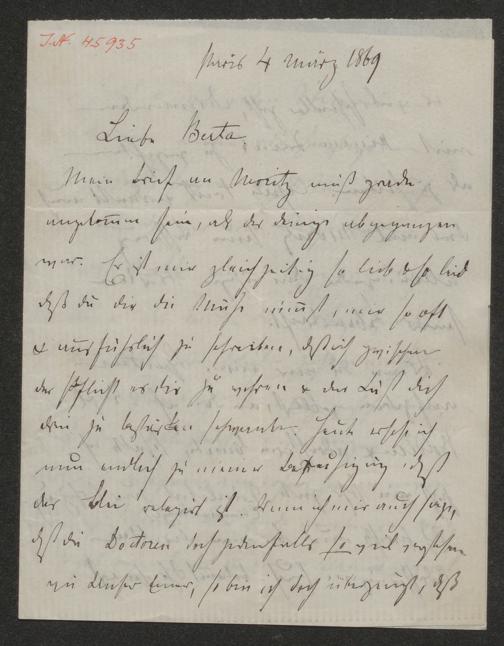 I.N. 45935
Paris 4 März 1869
Liebe Berta
Mein Brief an Moritz muß gerade
angekommen sein, als der deinige abgegangen
war. Es ist mir gleichzeitig so lieb & so leid
daß du dir die Mühe nimmst, mir so oft
& ausführlich zu schreiben, daß ich zwischen
der Pflicht es dir zu wehren & der Lust dich
drin zu bestärken schwanke. Heute ersehe ich
nun endlich zu meiner Beruhigung daß
der Blei relegirt ist. Wenn ich mir auch sage,
daß die Doctoren doch jedenfalls so viel verstehen
wie Unser Einer, so bin ich doch überzeugt, daß